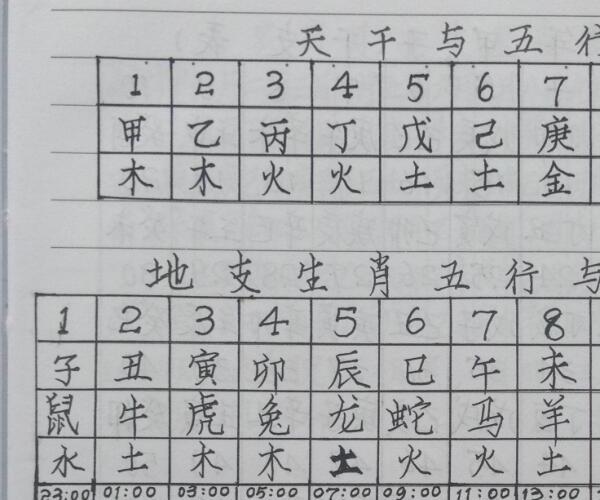 天干与五行
1 2 3 4 5 6 7
甲 乙 丙 丁 戊 己 庚
木 木 火 火 土 土 金
地支生肖五行与
1 2 3 4 5 6 7 8
子 丑 寅 卯 辰 巳 午 未
鼠 牛 虎 兔 龙 蛇 马 羊
水 土 木 木 土 火 火 土
23:00 01:00 03:00 05:00 07:00 09:00 11:00 13:00